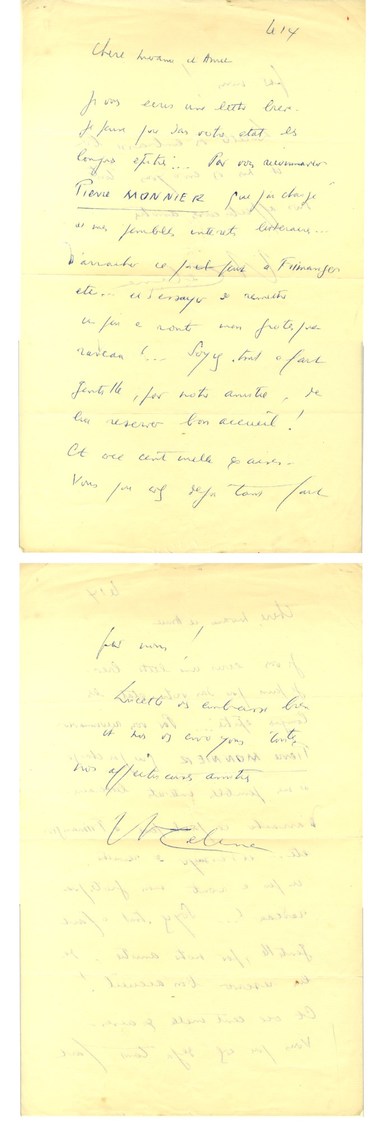 le 14
Chère Madame et Amie
Je vous écris une lettre bien
Je pense que dans votre état les
longues épîtres!... Par vous recommander
Pierre MONNIER que j'ai chargé
de mes pénibles intérêts littéraires...
D'arracher ce à
etc... et d'essayer de remettre
un peu à route mon grotesque
radeau!... Soyez tout à fait
gentille, par notre amitié, de
lui réserver bon accueil!
Et avec cent mille excuses.
Vous qui avez déjà tant fait
pour nous!
Lucette vous embrasse bien
et nous vous envoyons toutes
nos affectueuses amitiés
LF Céline